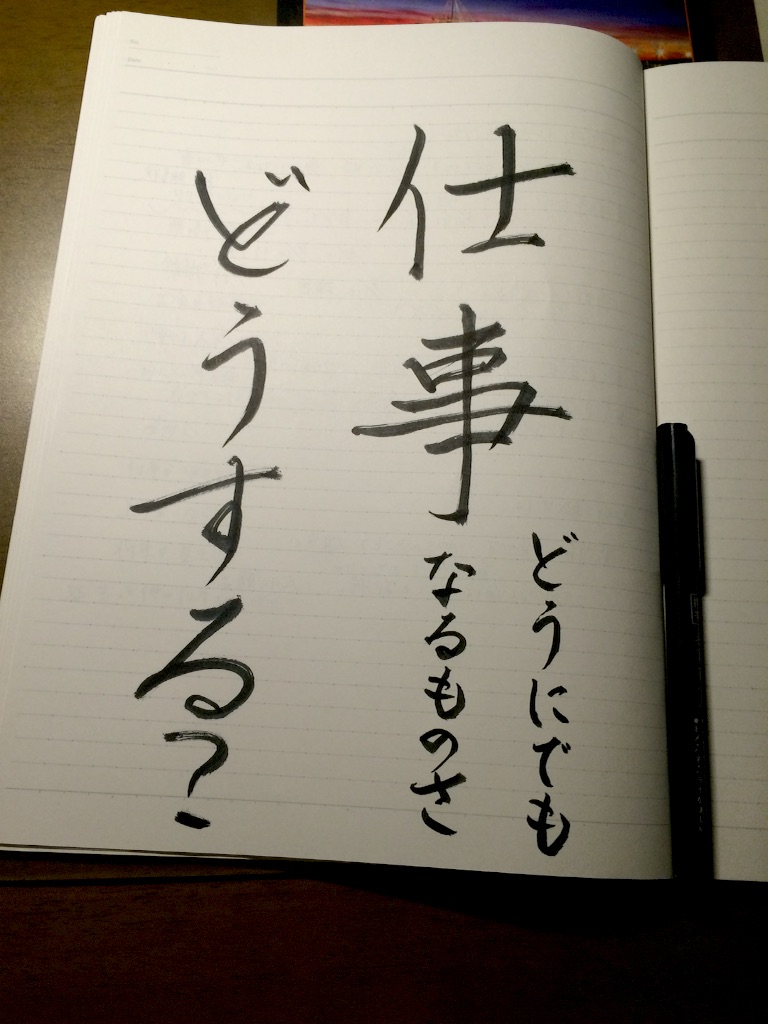 仕事
どうする?
どうにでも
なるものさ